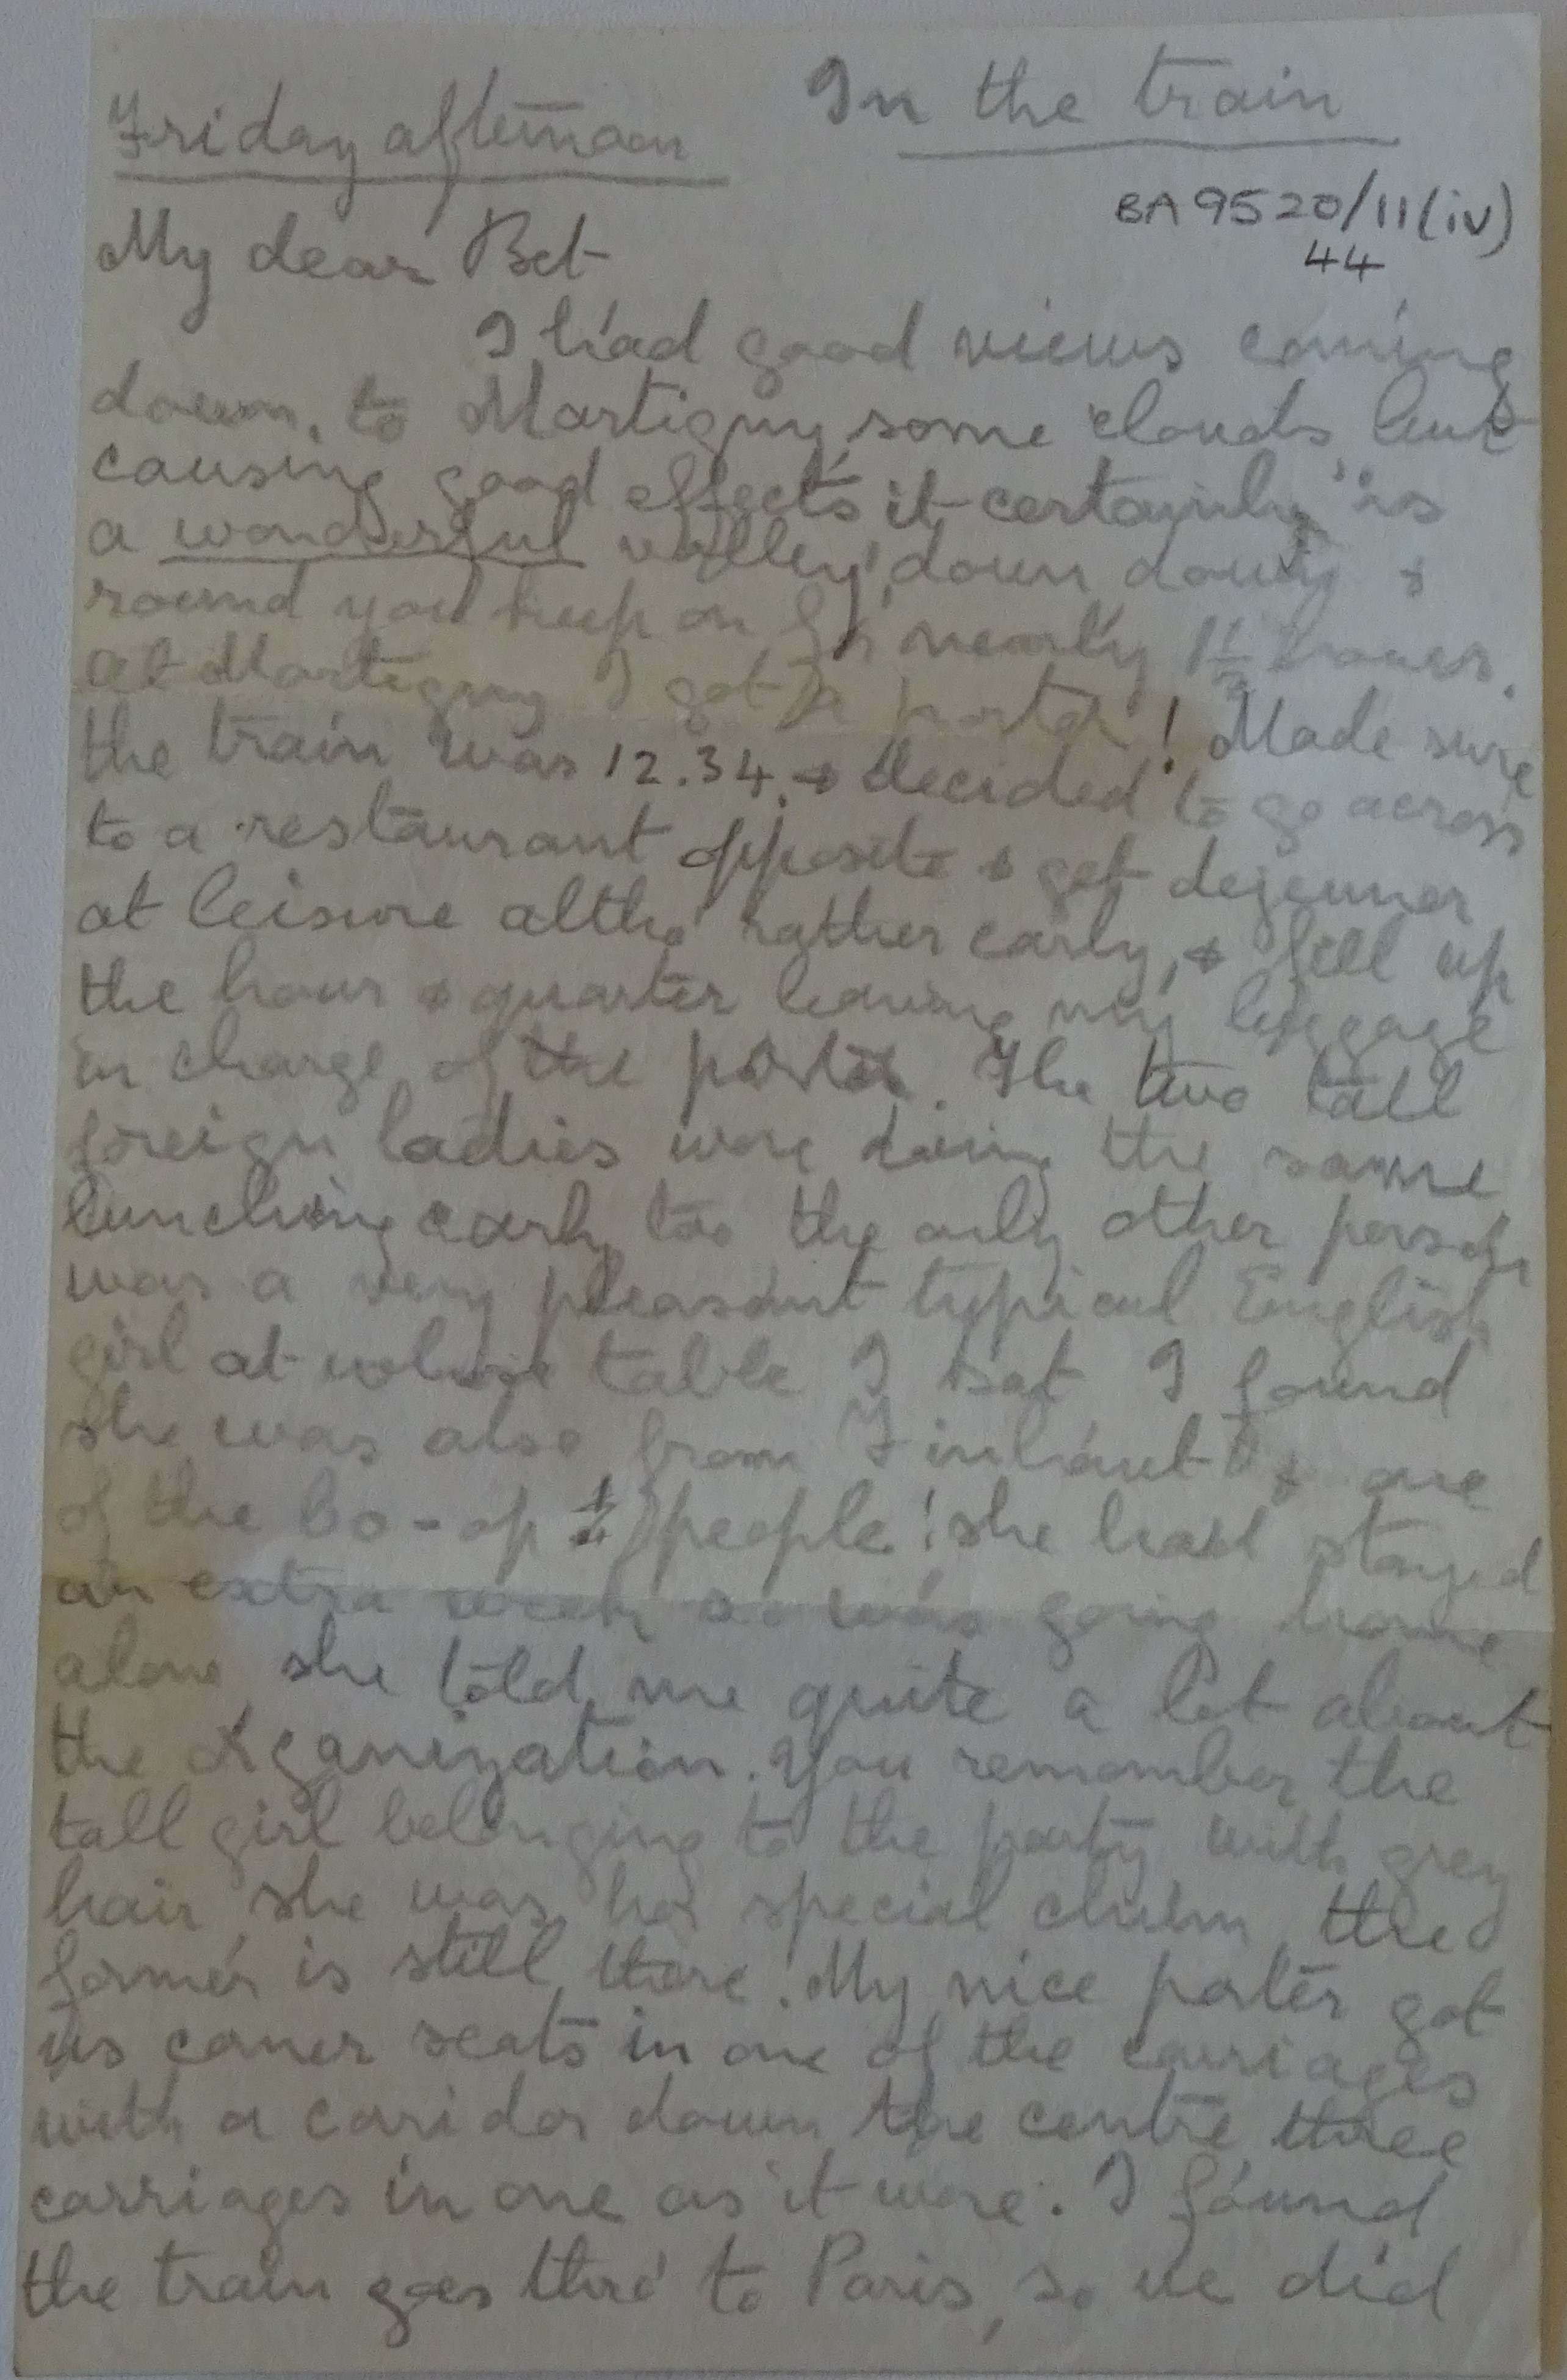 Friday afternoon
In the train
BA 9520/11(iv)
44
My dear Bet
I had good views coming
down, to Martigny, some clouds, but
causing good effects it certainly is
a wonderful valley, down down &
round you keep on for nearly 1½ hours.
At Martigny I got a porter! Made sure
the train was 12.34, & decided to go across
to a restaurant opposite & get dejeuner
at leisure altho' rather early, & fill up
the hour & quarter leaving my luggage
in charge of the porter. The two tall
foreign ladies were doing the same
lunching early too the only other person
was a very pleasant typical English
girl at whose table I sat I found
she was also from Finhaut & one
of the Co-op people! she had stayed
an extra week so was going home
alone she told me quite a lot about
the organization. You remember the
tall girl belonging to the party with grey
hair she was her special chum the
former is still there! My nice porter got
us corner seats in one of the carriages
with a coridor down the centre three
carriages in one as it were. I found
the train goes thro' to Paris, so we did